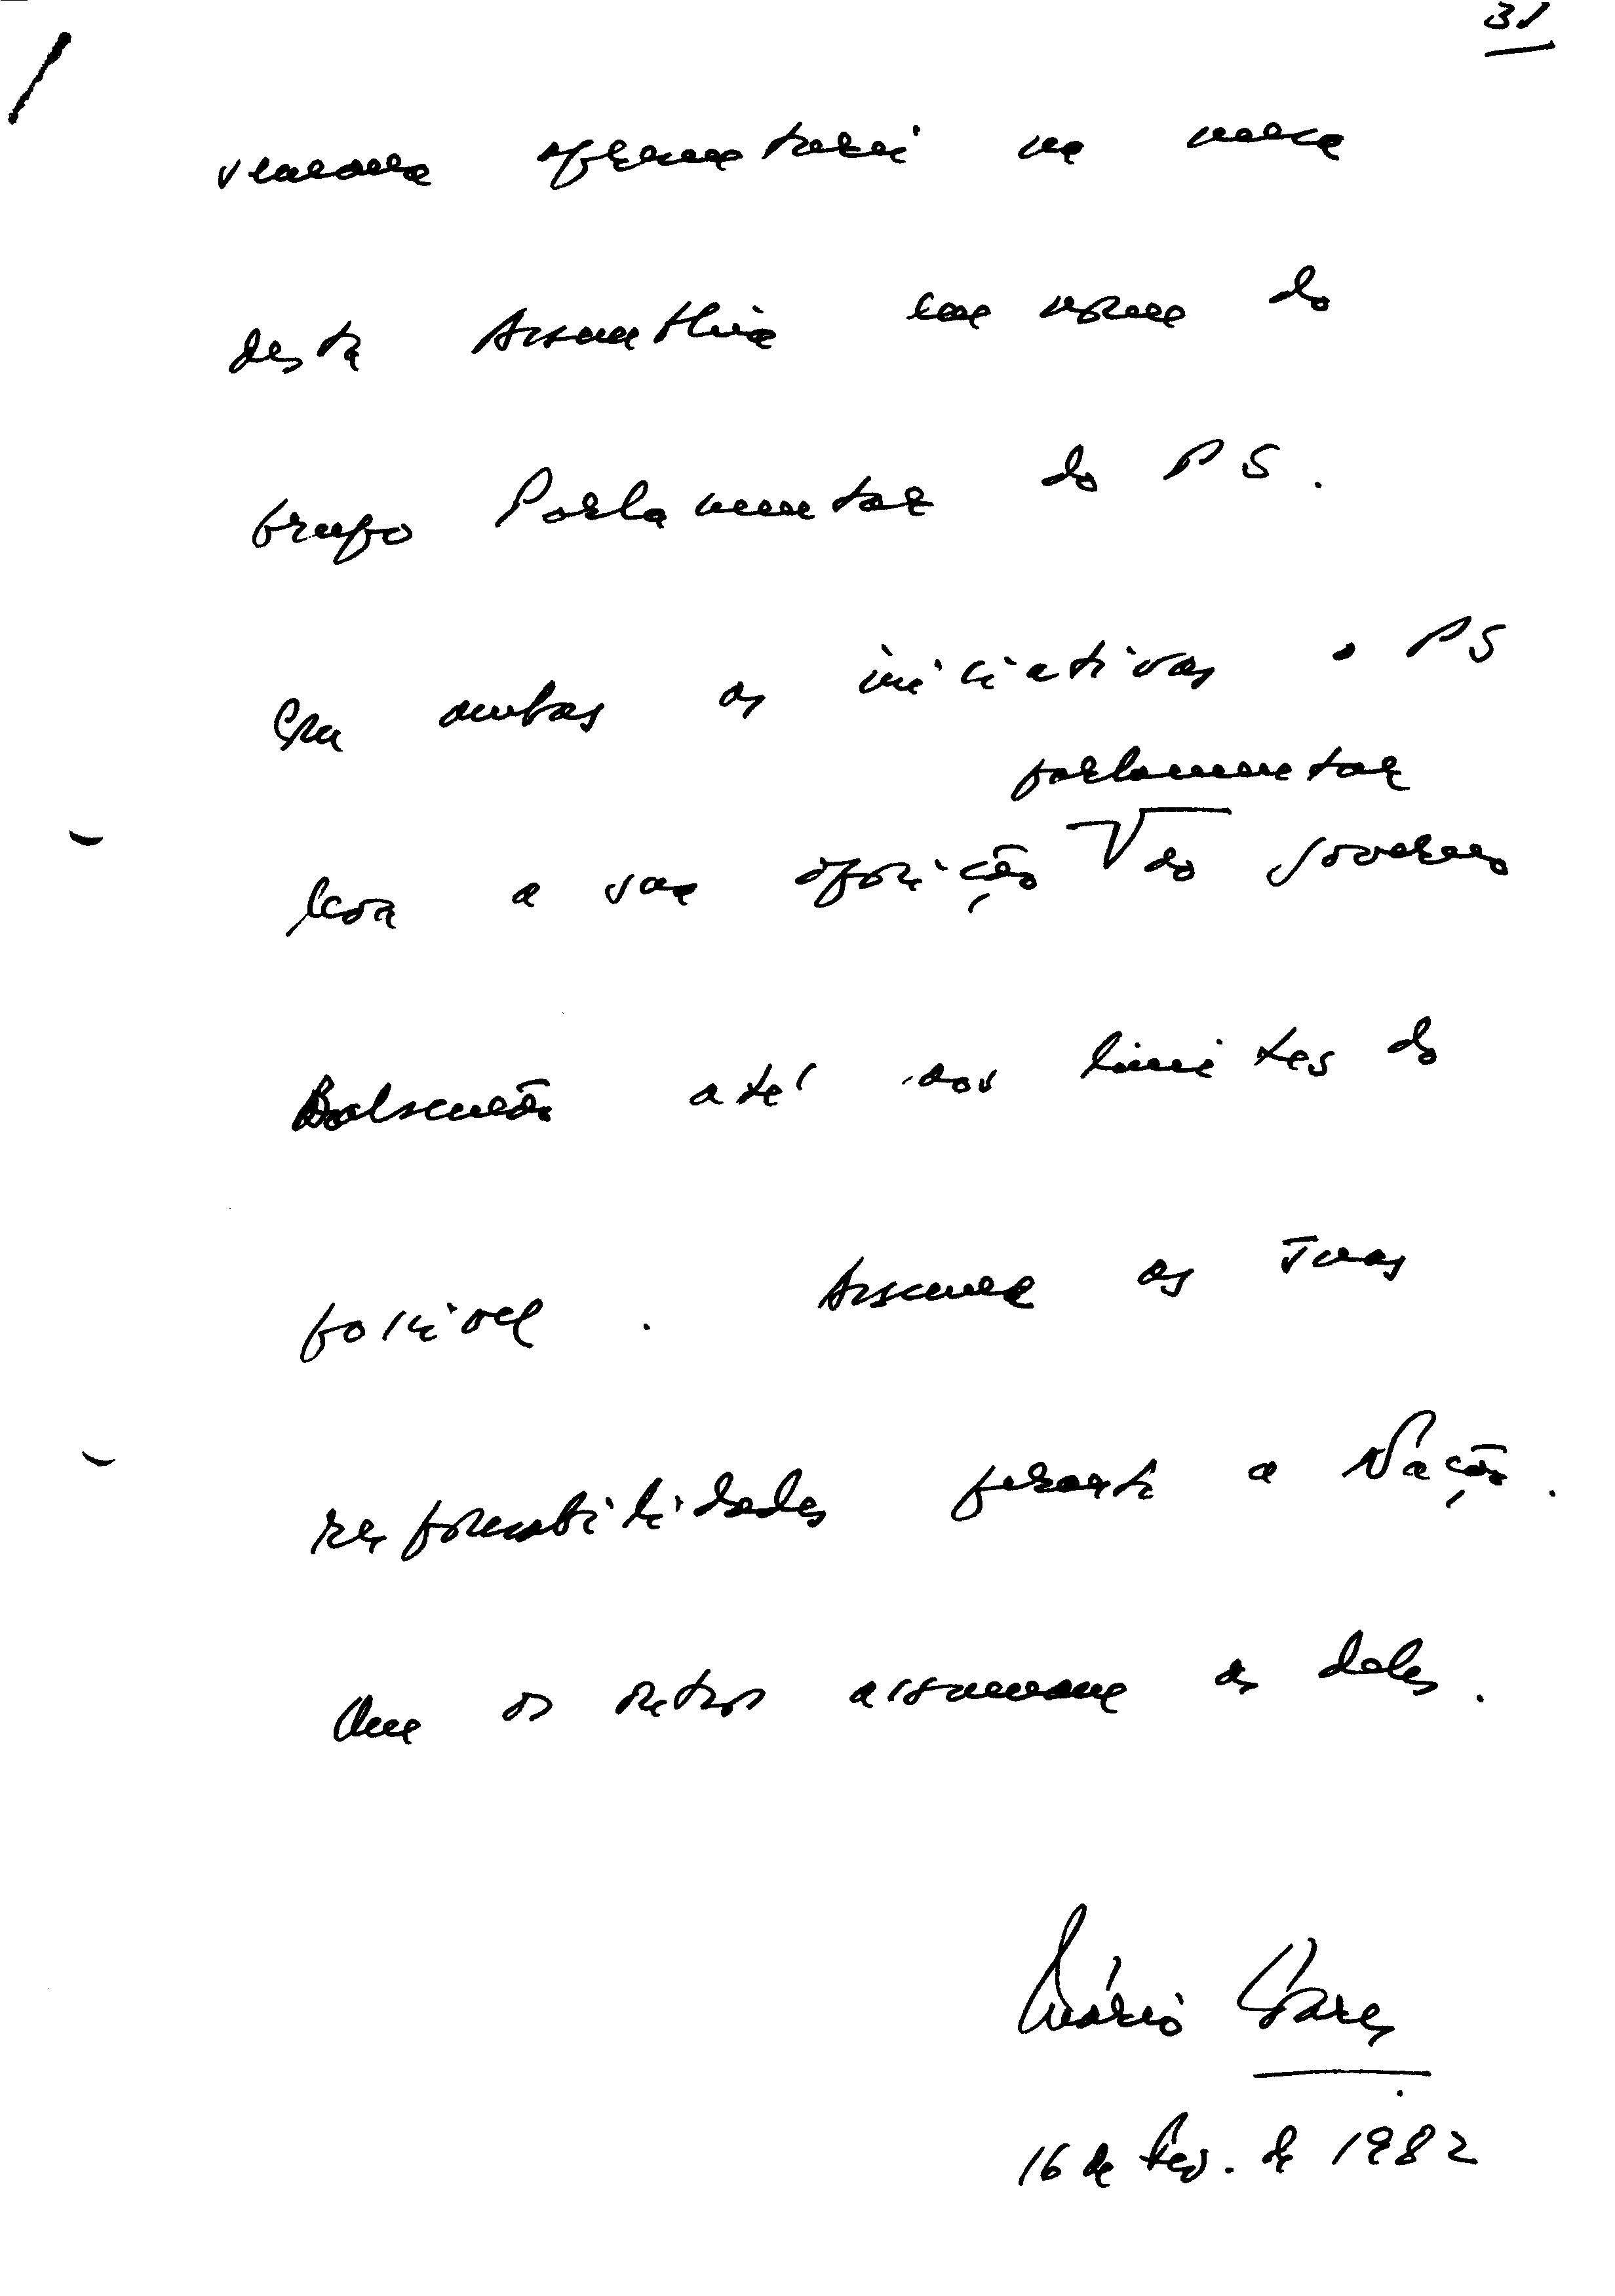 31
semana apresentarei na mesa
desta Assembleia em nome do
Grupo Parlamentar do PS.
Em ambas as iniciativas o PS
parlamentar
leva a sua oposição do governo
Balsemão até aos limites do
possível. Assume as suas
responsabilidades perante a Nação.
Que os outros assumam as deles.
Mário Soares
16 de Fev. de 1982